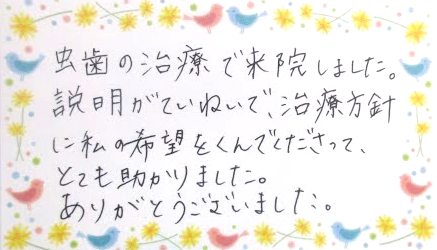 虫歯の治療で来院しました。
説明がていねいで、治療方針
に私の希望をくんでくださって、
とても助かりました。
ありがとうございました。